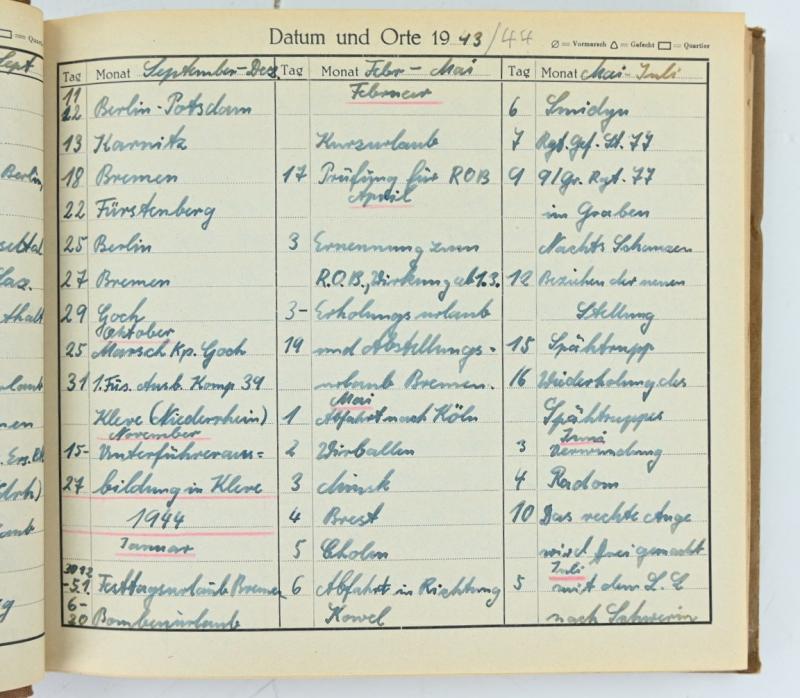 Datum und Orte 1943/44
= Vormarsch = Gefecht = Quartier
Tag Monat September-Dez.
11
12 Berlin-Potsdam
13 Karnitz
18 Bremen
22 Fürstenberg
25 Berlin
27 Bremen
29 Goch
Oktober
25 Marsch Kp. Goch
31 1. Füs. Ausb. Komp. 39
Kleve (Niederrhein)
November
15- Unterführeraus=
27 bildung in Kleve
1944
Januar
30.12
-5.1. Festtagsurlaub Bremen
6-
20 Bombenurlaub
Tag Monat Febr - Mai
Februar
Kurzurlaub
17 Prüfung für ROB
April
3 Ernennung zum
R.O.B., Wirkung ab 1.3.
3- Erholungsurlaub
19 und Abstellungs-
urlaub Bremen.
Mai
1 Abfahrt nach Köln
2 Wirballen
3 Minsk
4 Brest
5 Cholm
6 Abfahrt in Richtung
Kowel
Tag Monat Mai - Juli
6 Smidyn
7 Rgt. Gef. St. 77
9 9/Gr. Rgt. 77
im Graben
Nachts Schanzen
12 Beziehen der neuen
Stellung
15 Spähtrupp
16 Wiederholung des
Spähtruppes
Juni
3 Verwundung
4 Radom
10 Das rechte Auge
wird frei gemacht
Juli
5 mit dem L.Z.
nach Schwerin
Sept
Berlin,